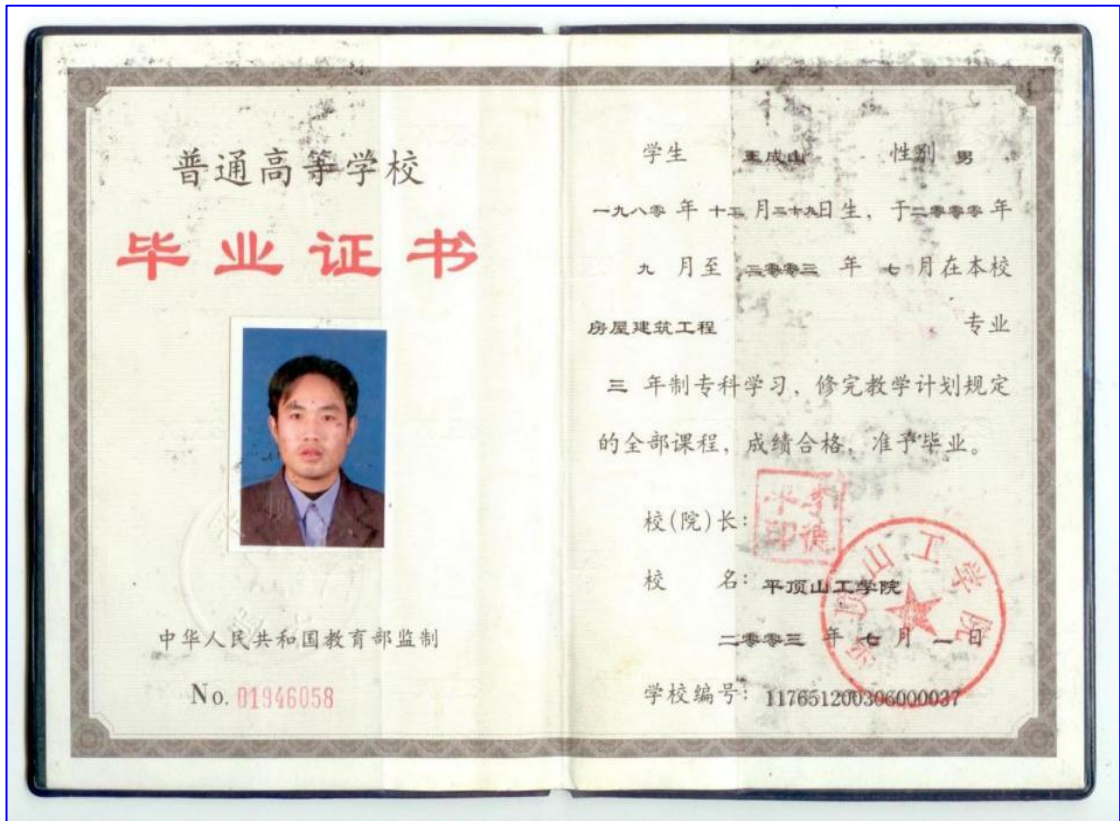 普通高等学校
毕业证书
中华人民共和国教育部监制
No. 01946058
学生 王成山 性别 男
一九八零 年 十二 月二十九日生，于二零零零年
九 月至 二零零三 年 七 月在本校
房屋建筑工程 专业
三 年制专科学习，修完教学计划规定
的全部课程，成绩合格，准予毕业。
校(院)长：
李德平印
校 名：平顶山工学院
平顶山工学院
二零零三 年 七 月 一 日
学校编号：117651200306000037